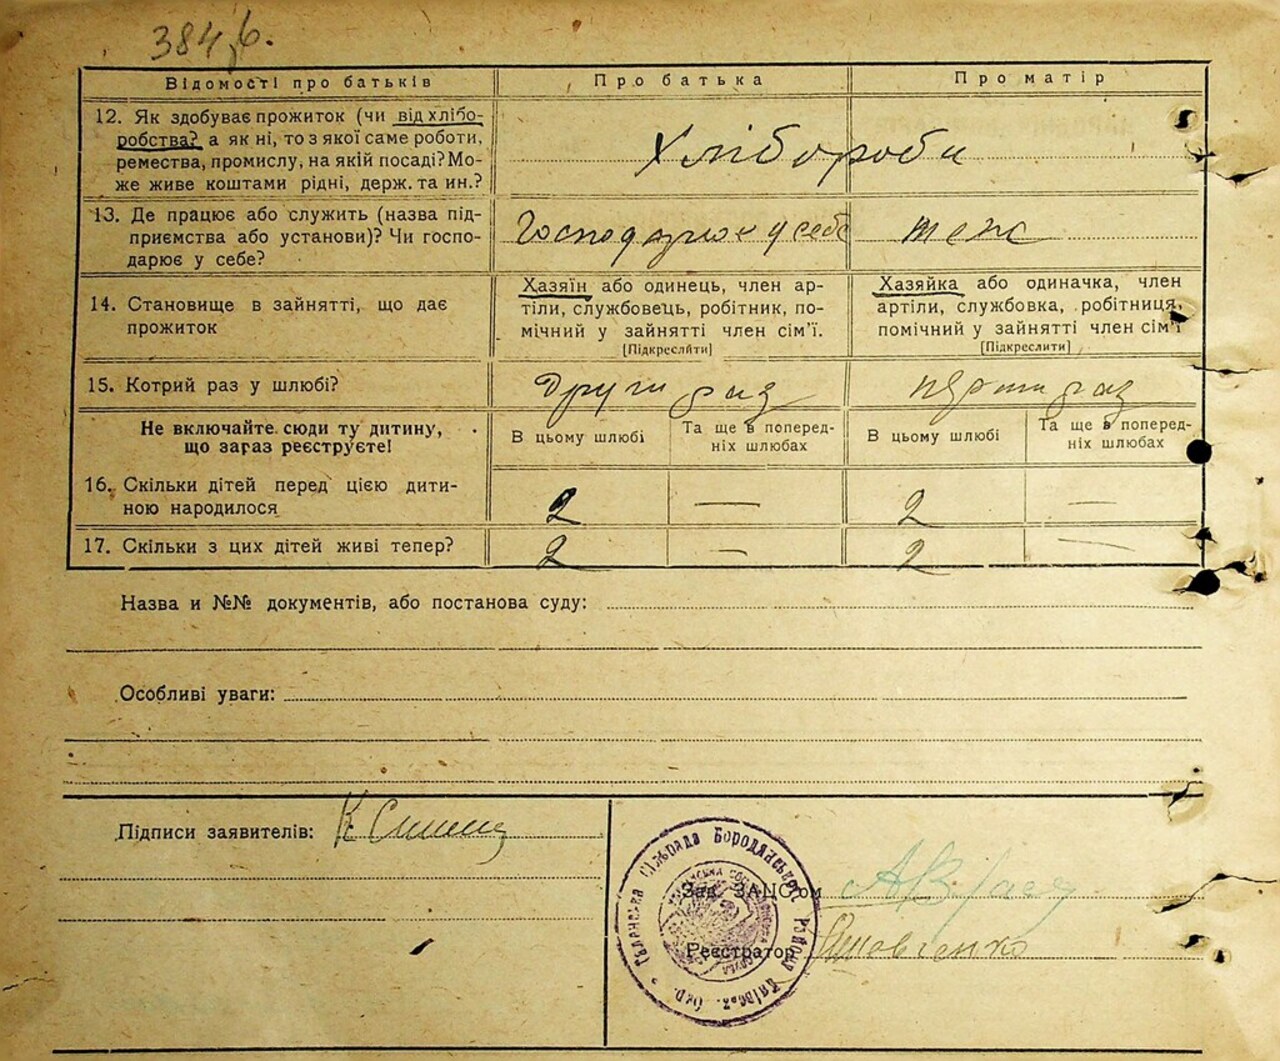 384, б.
Відомості про батьків
Про батька
Про матір
12. Як здобуває прожиток (чи від хлібо-
робства? а як ні, то з якої саме роботи,
ремества, промислу, на якій посаді? Мо-
же живе коштами рідні, держ. та ин.?
Хлібороби
13. Де працює або служить (назва під-
приємства або установи)? Чи госпо-
дарює у себе?
Господарює у себе
теж
14. Становище в зайнятті, що дає
прожиток
Хазяїн або одинець, член ар-
тіли, службовець, робітник, по-
мічний у зайнятті член сім'ї.
[Підкреслити]
Хазяйка або одиначка, член
артіли, службовка, робітниця,
помічний у зайнятті член сім'ї
[Підкреслити]
15. Котрий раз у шлюбі?
други раз
перши раз
Не включайте сюди ту дитину,
що зараз реєструєте!
В цьому шлюбі
Та ще в поперед-
ніх шлюбах
В цьому шлюбі
Та ще в поперед-
ніх шлюбах
16. Скільки дітей перед цією дити-
ною народилося
2 — 2 —
17. Скільки з цих дітей живі тепер?
2 — 2 —
Назва и №№ документів, або постанова суду:
Особливі уваги:
Підписи заявителів: К
Зав. ЗАПС'ом
Реєстратор
Сільрада Бородянського району Київськ. Окр.